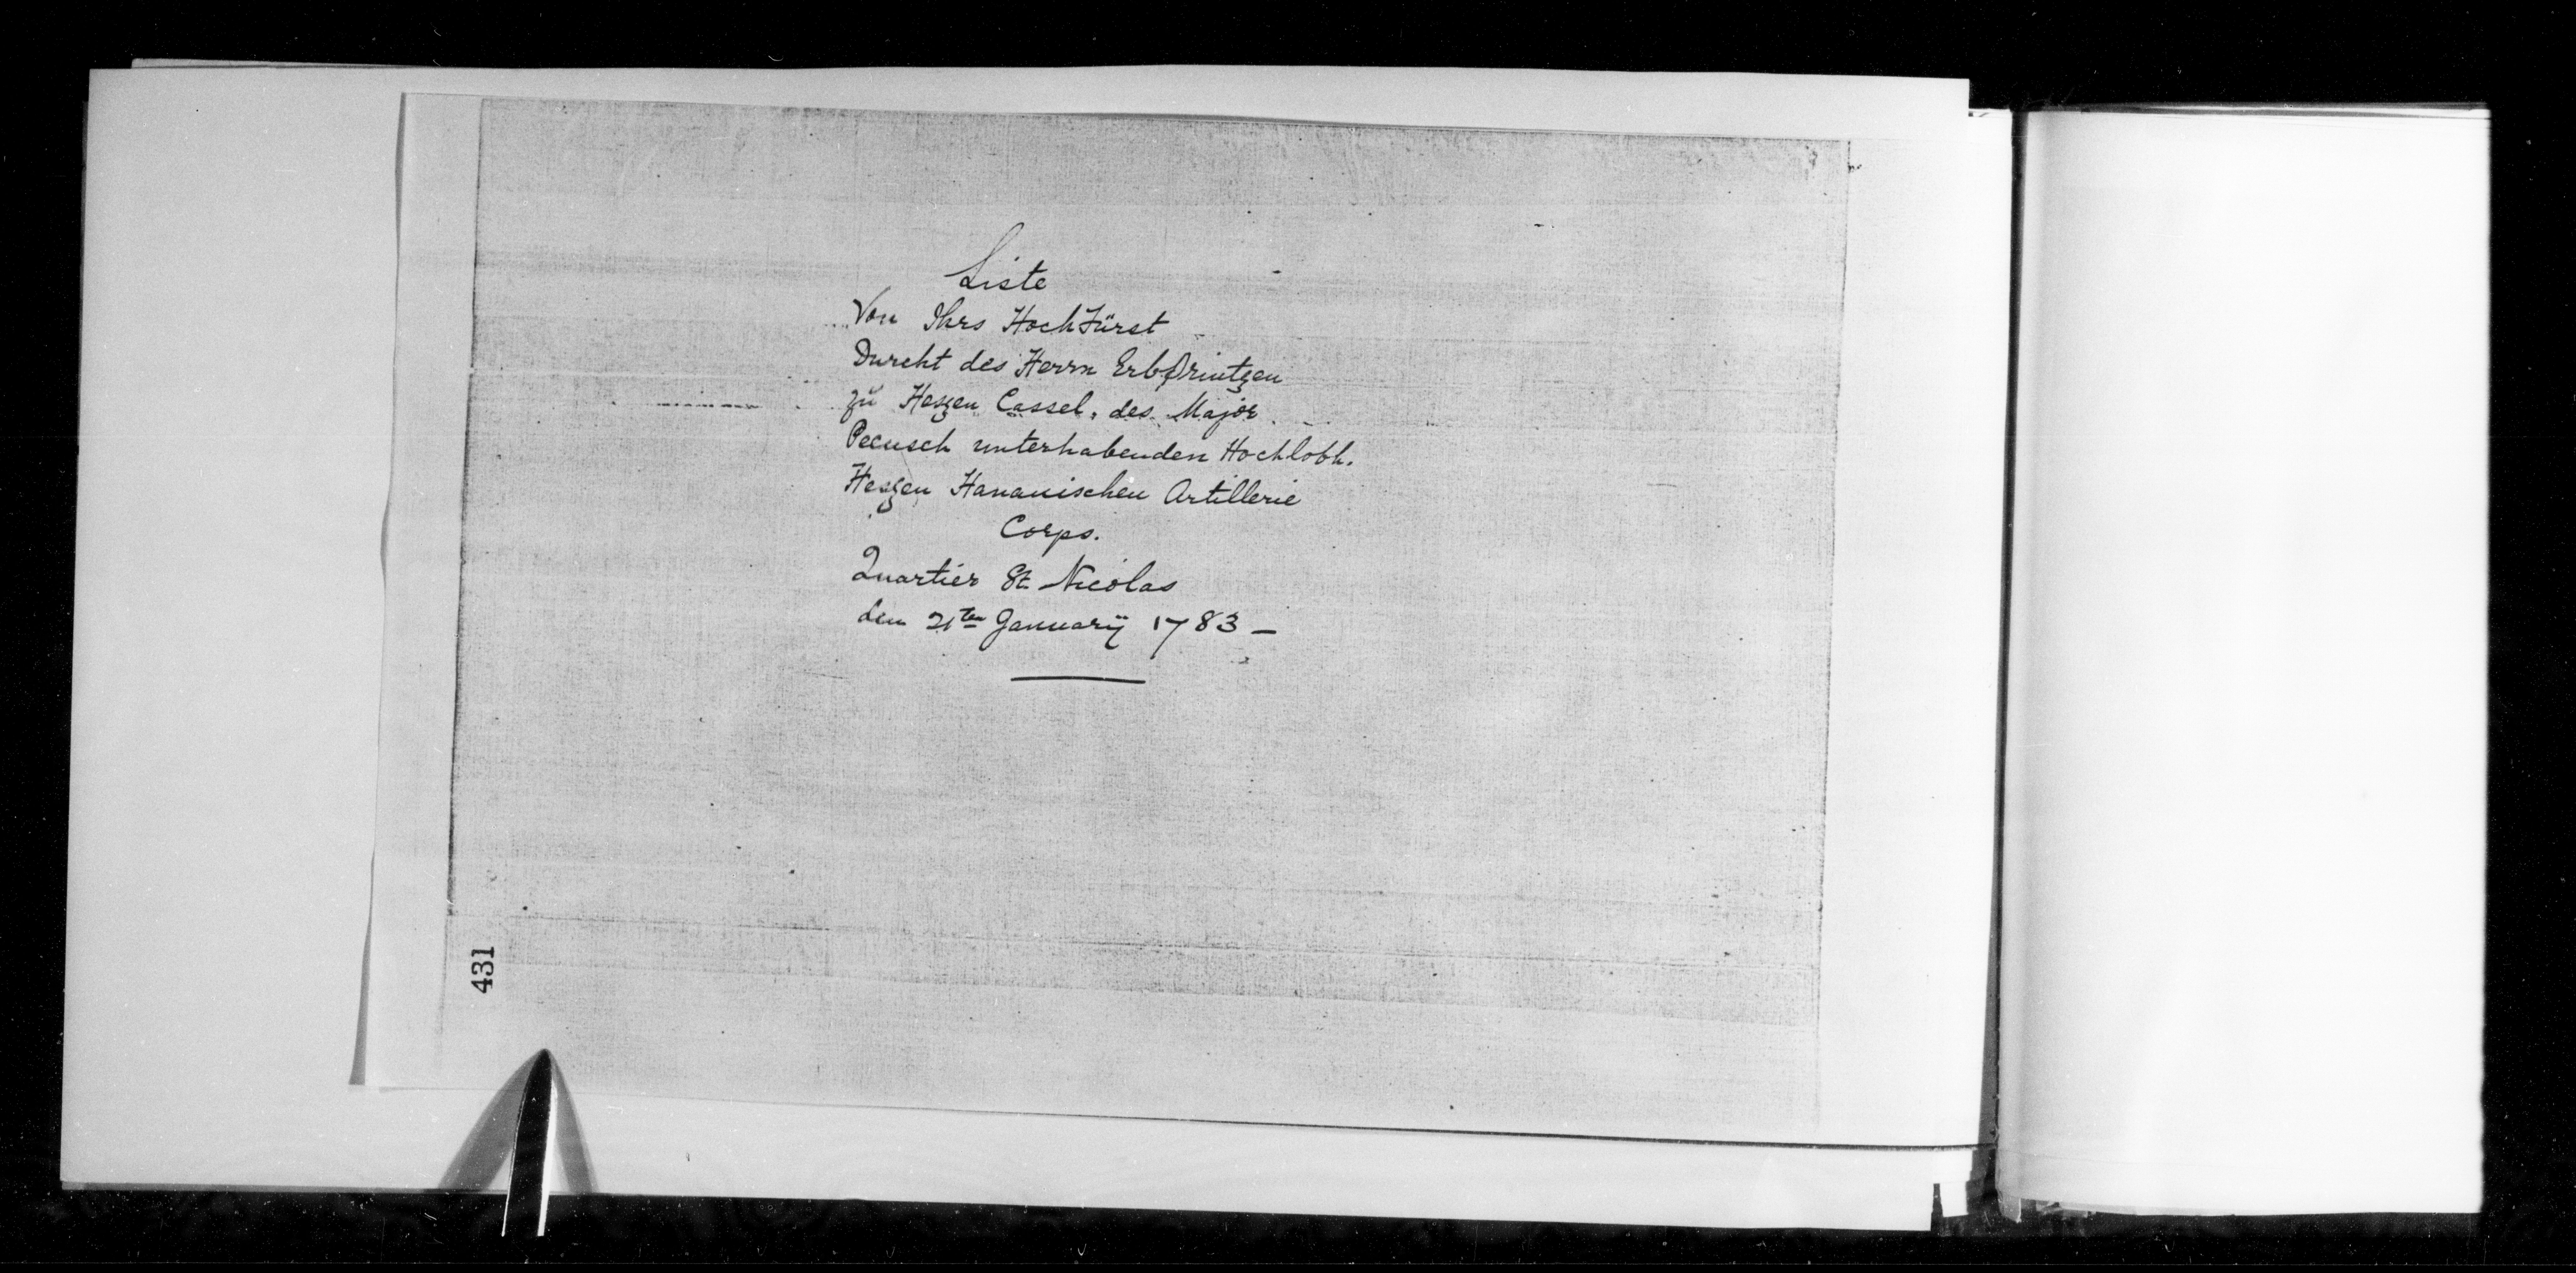 Liste
Von Ihrs HochFürst
Durcht des Herrn Erbprintzen
zu Heszen Cassel, des Major
Pecusch unterhabenden Hochlobl.
Heszen Hanauischen Artillerie
Corps.
Quartier St Nicolas
den 21ten Januarÿ 1783 —
431